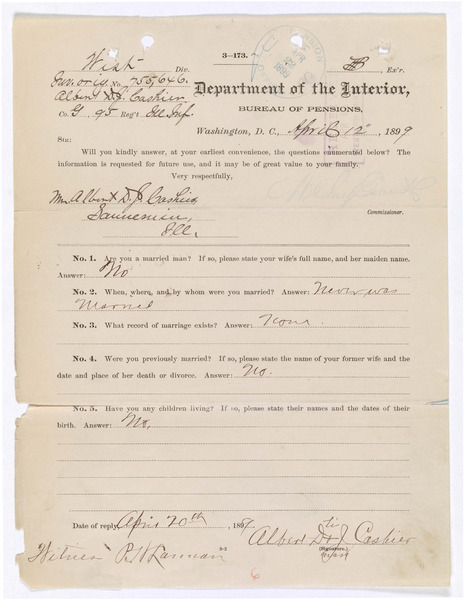 West Div.
3—173.
Ex'r.
Inv. orig. No. 755,646.
Albert D. J. Cashier
Co. G 95 Reg't Ill Inf.
Department of the Interior,
BUREAU OF PENSIONS,
Washington, D. C., April 12, 1899
SIR:
Will you kindly answer, at your earliest convenience, the questions enumerated below? The
information is requested for future use, and it may be of great value to your family.
Very respectfully,
Mr. Albert D. J. Cashier
Saunemin,
Ill.
Commissioner.
No. 1. Are you a married man? If so, please state your wife's full name, and her maiden name.
Answer: No
No. 2. When, where, and by whom were you married? Answer: Never was
Married
No. 3. What record of marriage exists? Answer: None.
No. 4. Were you previously married? If so, please state the name of your former wife and the
date and place of her death or divorce. Answer: No.
No. 5. Have you any children living? If so, please state their names and the dates of their
birth. Answer: No,
Date of reply, April 20th, 189
his
Albert D. J. Cashier
(Signature.)
mark
Witness
3-2
6